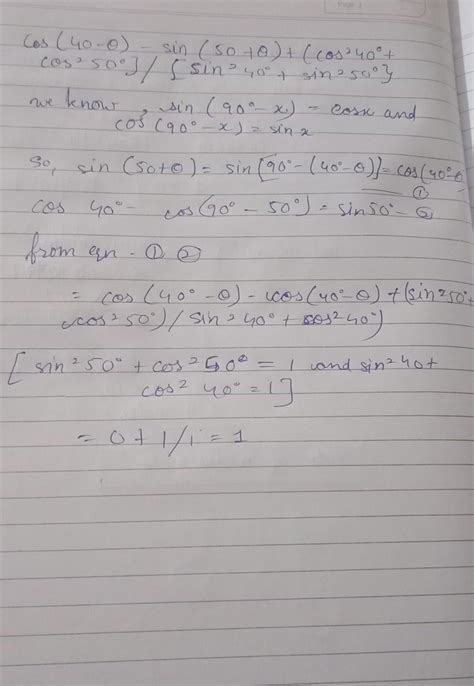 Page 1
cos(40-θ) - sin(50+θ)+(cos²40°+
cos²50°]/[sin²40°+sin²50°}
we know, sin(90°-x) = cosx and
cos(90°-x)=sinx
So, sin(50+θ)=sin[90°-(40°-θ)]=cos(40°-θ
①
cos 40° - cos(90°-50°)=sin50°-②
from eqn - ① ②
= cos(40°-θ)-cos(40°-θ)+(sin²50°+
cos²50°)/sin²40°+cos²40°)
[sin²50°+cos²50°=1 and sin²40+
cos²40°=1]
= 0+1/1=1